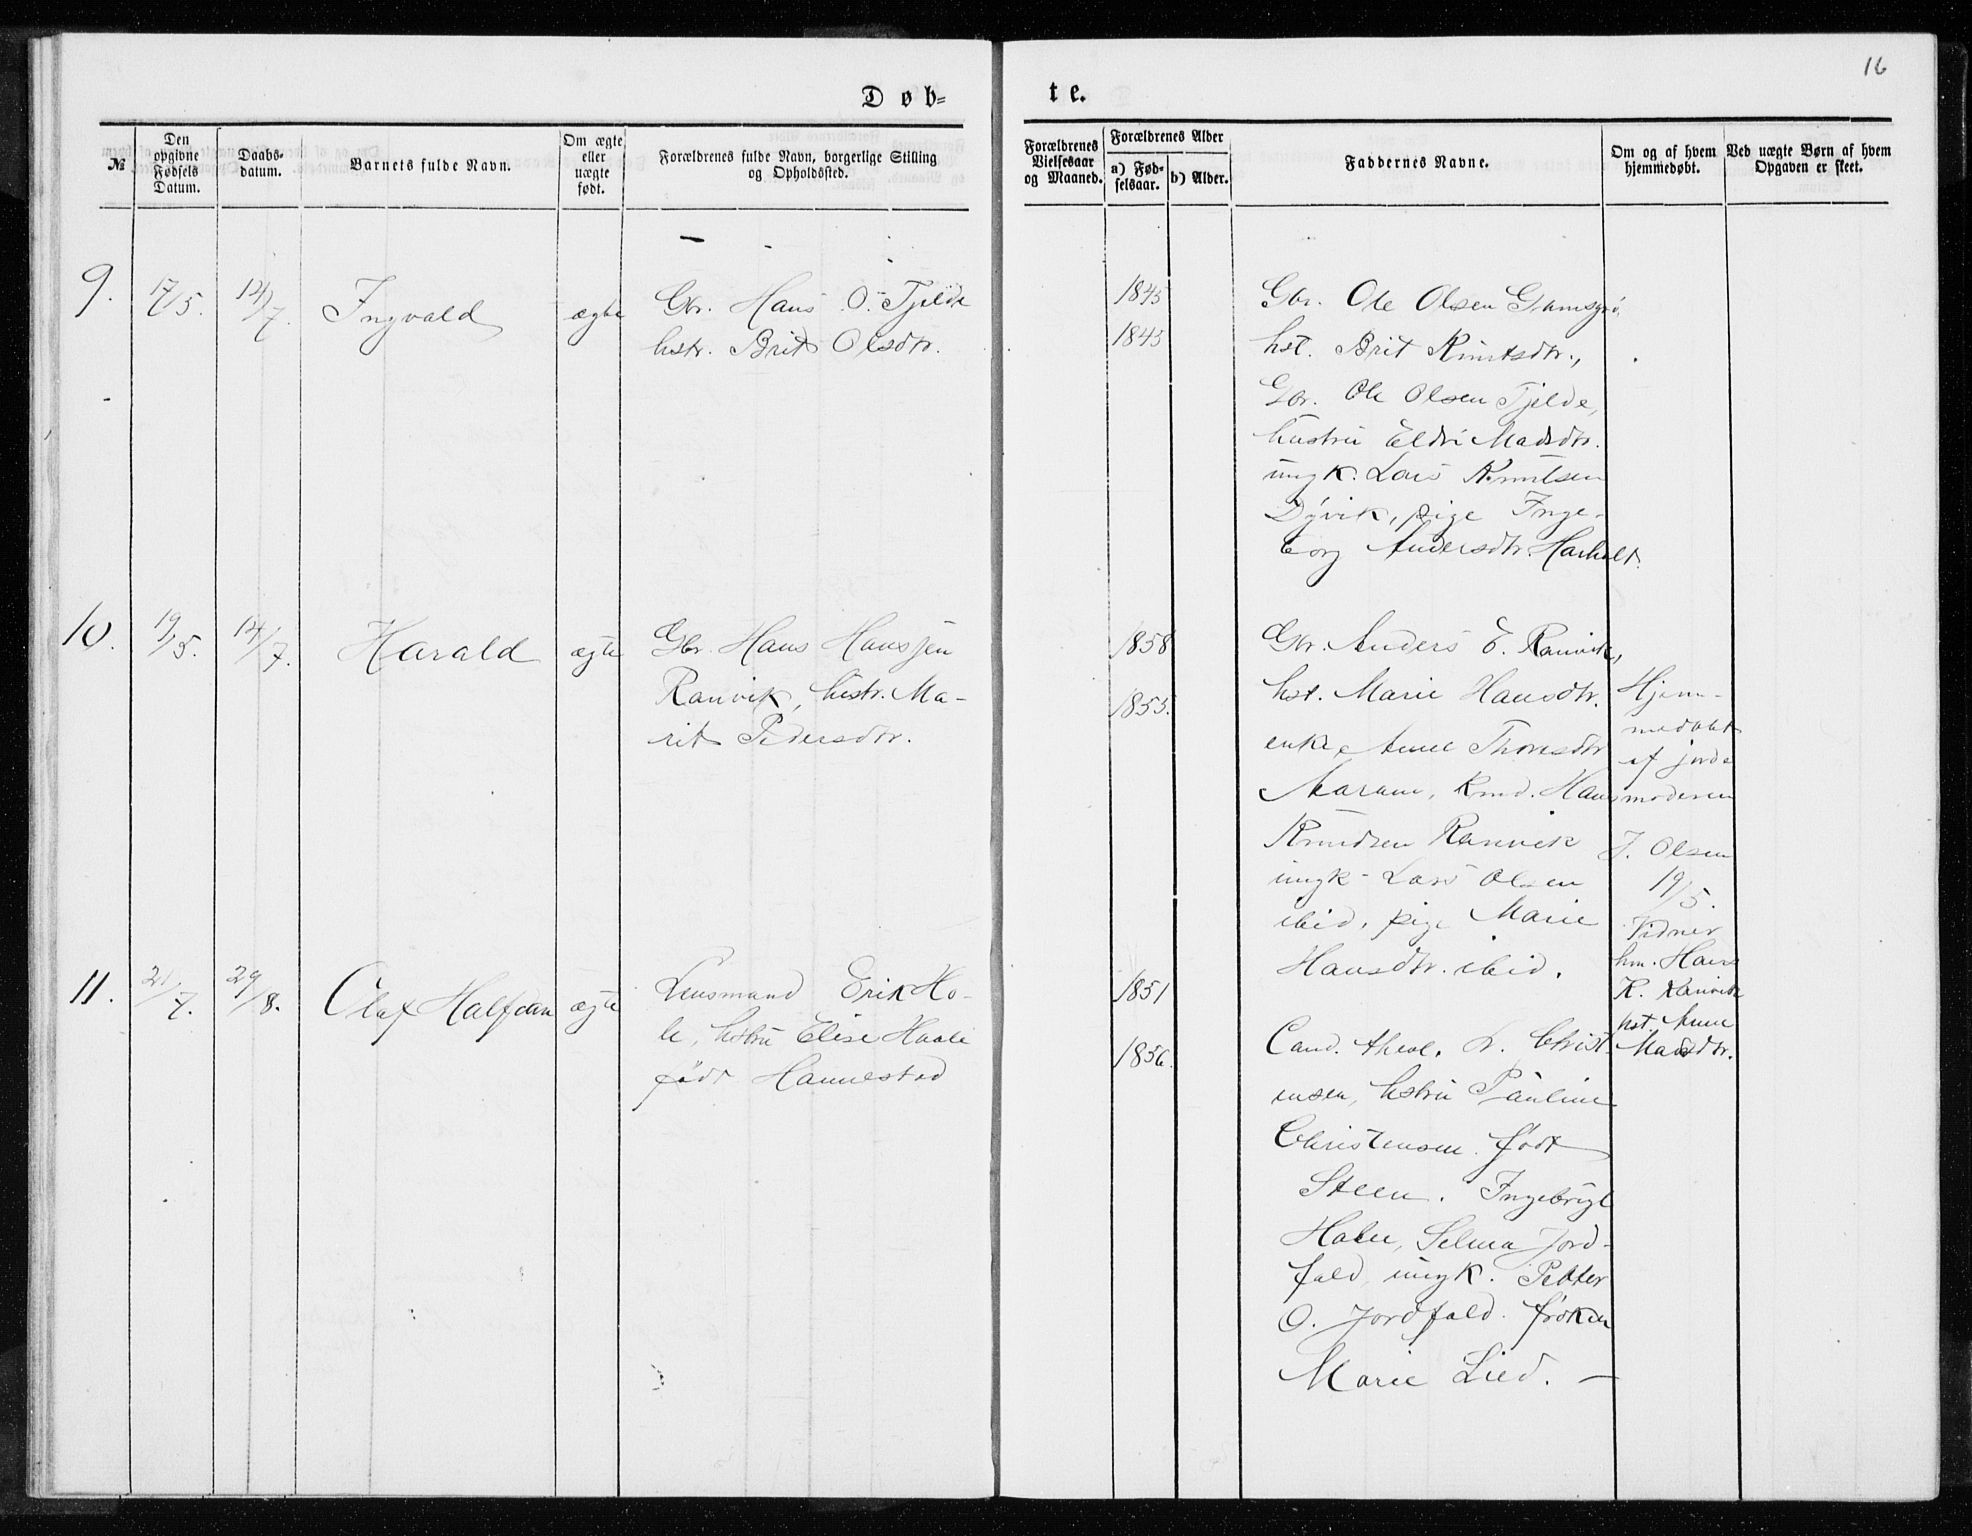 16
Døb-
te.
№
Den opgivne Fødsels Datum.
Daabs-datum.
Barnets fulde Navn.
Om ægte eller uægte født.
Forældrenes fulde Navn, borgerlige Stilling og Opholdssted.
Forældrenes Vielsesaar og Maaned.
Forældrenes Alder
a) Fød-selsaar.
b) Alder.
Faddernes Navne.
Om og af hvem hjemmedøbt.
Ved uægte Børn af hvem Opgaven er skeet.
9.
17/5.
14/7.
Ingvald
ægte
Gbr. Hans O. Tjelde
hstr. Brit Olsdtr.
1845
1845
Gbr. Ole Olsen
hst. Brit Knutsdtr.,
Gbr. Ole Olsen Tjelde,
hustru Eldri Madsdtr.
ungk. Lars Knutsen
Dyvik, pige Inge-
borg Andersdtr.
10.
19/5.
14/7.
Harald
ægte
Gbr. Hans Hanssen
Ranvik, hustr. Ma-
rit Pedersdtr.
1858
1853.
Gbr. Anders E. Ranvik,
hst. Marie Hansdtr.
enke Anne Thoresdtr
kmd. Hans
Knudsen Ranvik
ungk. Lars Olsen
ibid, pige Marie
Hansdtr. ibid.
Hjem-
medøbt
af jorde
moderen
J. Olsen
19/5.
Vidner
hm. Hans
K. Ranvik
hst. Anne
Madsdtr.
11.
21/7.
29/8.
Olaf Halfdan
ægte
Lensmand Erik Ho-
le, hstru Elise Haale
født Hannestad
1851
1856.
Cand. theol. L. Christ-
ensen, hstru Pauline
Christensen født
Steen. Ingebrigt
Halen, Selma Jord-
fald, ungk. Petter
O. Jordfald. frøken
Marie Lied. —